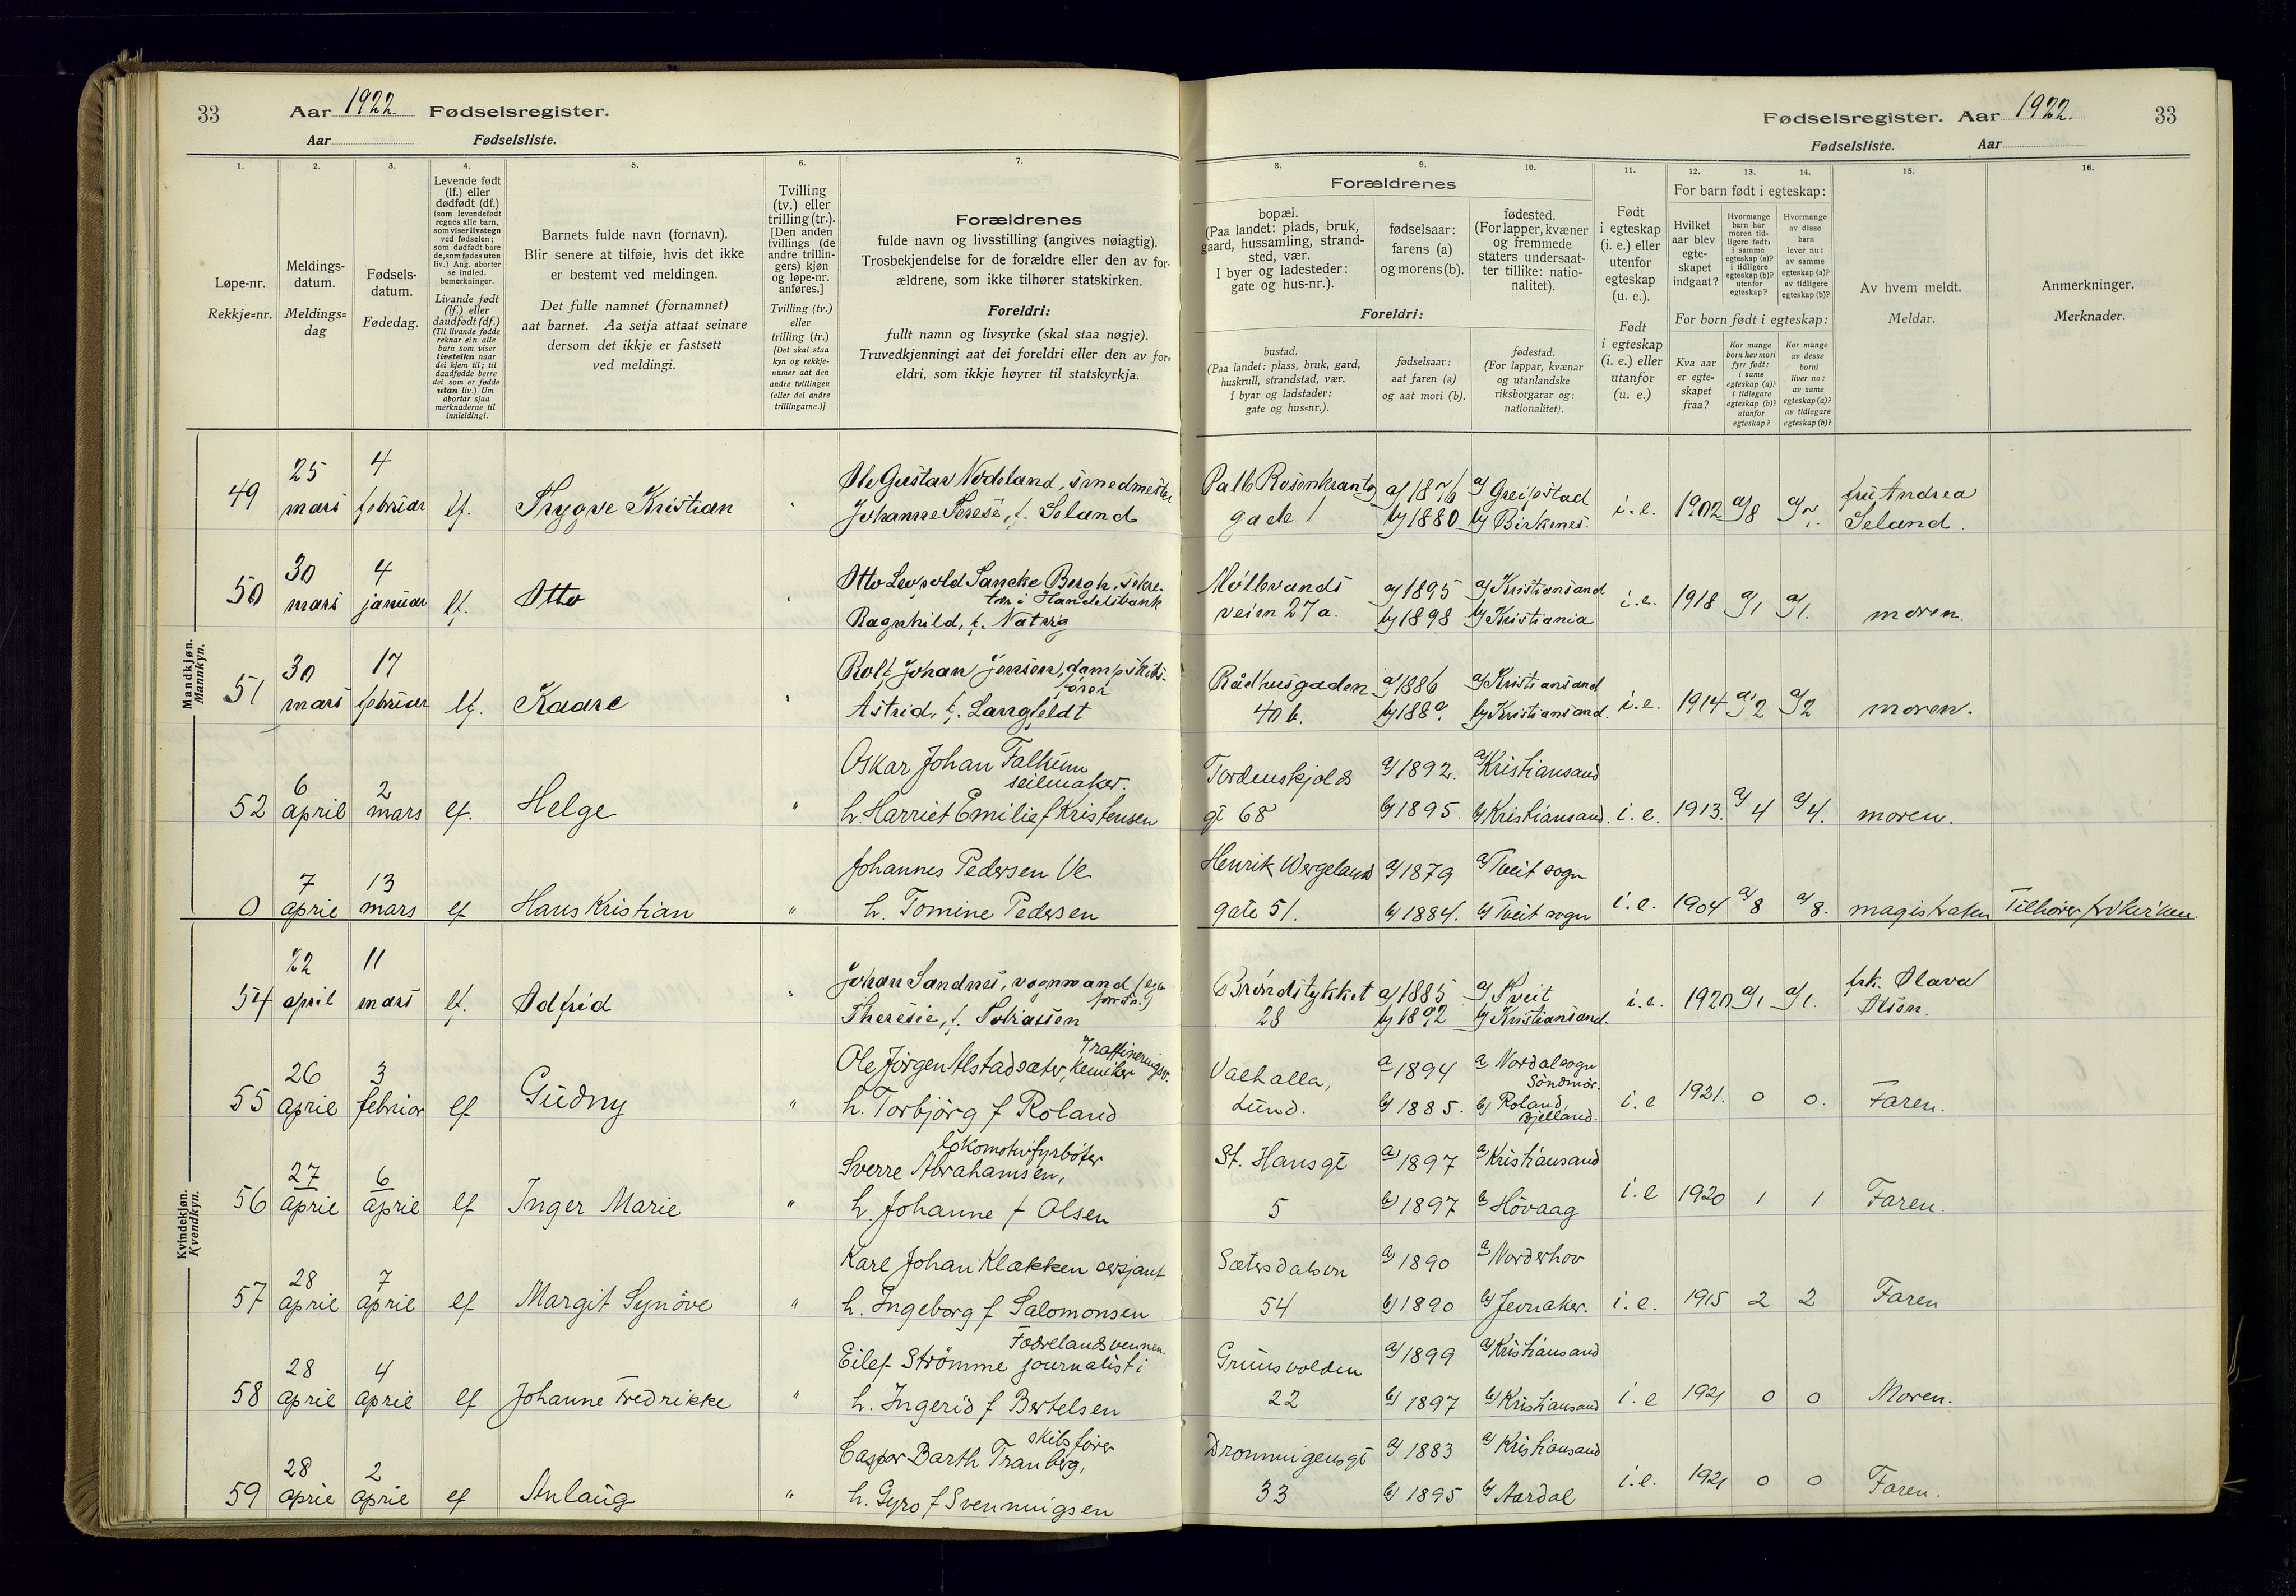 33 Aar 1922. Fødselsregister.
Aar Fødselsliste.
1. 2. 3. 4. 5. 6. 7.
Løpe-nr.
Rekkje=nr.
Meldings-
datum.
Meldings=
dag
Fødsels-
datum.
Fødedag.
Levende født
(lf.) eller
dødfødt (df.)
(som levendefødt
regnes alle barn,
som viser livstegn
ved fødselen;
som dødfødt bare
de, som fødes uten
liv.) Ang. aborter
se indled.
bemerkninger.
Livande født
(lf.) eller
daudfødt (df.)
(Til livande fødde
reknar ein alle
barn som viser
livsteikn naar
dei kjem til; til
daudfødde berre
dei som er fødde
utan liv.) Um
abortar sjaa
merknaderne til
innleidingi.
Barnets fulde navn (fornavn).
Blir senere at tilføie, hvis det ikke
er bestemt ved meldingen.
Det fulle namnet (fornamnet)
aat barnet. Aa setja attaat seinare
dersom det ikkje er fastsett
ved meldingi.
Tvilling
(tv.) eller
trilling (tr.).
[Den anden
tvillings (de
andre trillin-
gers) kjøn
og løpe-nr.
anføres.]
Tvilling (tv.)
eller
trilling (tr.)
[Det skal staa
kyn og rekkje-
numer aat den
andre tvillingen
(eller dei andre
trillingarne.)]
Forældrenes
fulde navn og livsstilling (angives nøiagtig).
Trosbekjendelse for de forældre eller den av for-
ældrene, som ikke tilhører statskirken.
Foreldri:
fullt namn og livsyrke (skal staa nøgje).
Truvedkjenningi aat dei foreldri eller den av for-
eldri, som ikkje høyrer til statskyrkja.
Mandkjøn.
Mannkyn.
49 25 mars 4 februar lf. Trygve Kristian "
Ole Gustav Nodeland, smedmester
Johanne Terese, f. Seland
50 30 mars 4 januar lf. Otto "
Otto Leopold Sancke Bergh, sekre-
tær i Handelsbank
Ragnhild, f. Natvig
51 30 mars 17 februar lf. Kaare "
Rolf Johan Jensen, dampskibs-
fører
Astrid, f. Langfeldt
52 6 april 2 mars lf. Helge "
Oskar Johan Falkum
seilmaker.
h. Harriet Emilie f Kristensen
0 7 april 13 mars lf Hans Kristian "
Johannes Pedersen Ve
h. Tomine Pedersen
Kvindekjøn.
Kvendkyn.
54 22 april 11 mars lf. Odfrid "
Johan Sandnes, vognmand
Theresie, f. Tobiassen
55 26 april 3 februar lf Gudny "
Raffineringsv.
Ole Jörgen Alstadsæter, kemiker
h. Torbjörg f Roland
56 27 april 6 april lf Inger Marie "
lokomotivfyrböter
Sverre Abrahamsen,
h. Johanne f Olsen
57 28 april 7 april lf Margit Synöve "
Karl Johan Klækken sersjant
h. Ingeborg f Salomonsen
58 28 april 4 april lf Johanne Fredrikke "
Fædrelandsvennen.
Eilef Strömme journalist i
h. Ingerid f Bertelsen
59 28 april 2 april lf Anlaug "
skibsfører
Caspar Barth Tranberg,
h. Gyro f Svenningsen
Fødselsregister. Aar 1922. 33
Fødselsliste. Aar
8. 9. 10. 11. 12. 13. 14. 15. 16.
Forældrenes
bopæl.
(Paa landet: plads, bruk,
gaard, hussamling, strand-
sted, vær.
I byer og ladesteder:
gate og hus-nr.).
fødselsaar:
farens (a)
og morens (b).
fødested.
(For lapper, kvæner
og fremmede
staters undersaat-
ter tillike: natio-
nalitet).
Foreldri:
bustad.
(Paa landet: plass, bruk, gard,
huskrull, strandstad, vær.
I byar og ladstader:
gate og hus=nr.).
fødselsaar:
aat faren (a)
og aat mori (b).
fødestad.
(For lappar, kvænar
og utanlandske
riksborgarar og:
nationalitet).
Født
i egteskap
(i. e.) eller
utenfor
egteskap
(u. e.).
Født
i egteskap
(i. e.) eller
utanfor
egteskap
(u. e.)
For barn født i egteskap:
Hvilket
aar blev
egte-
skapet
indgaat?
Hvormange
barn har
moren tid-
ligere født:
i samme
egteskap (a)?
i tidligere
egteskap (b)?
utenfor
egteskap?
Hvormange
av disse
barn
lever nu:
av samme
egteskap (a)?
av tidligere
egteskap (b)?
For born født i egteskap:
Kva aar
er egte=
skapet
fraa?
Kor mange
born hev mori
fyrr født:
i same
egteskap (a)?
i tidlegare
egteskap (b)?
utanfor
egteskap?
Kor mange
av desse
borni
liver no:
av same
egteskap (a)?
av tidlegare
egteskap (b)?
Av hvem meldt.
Meldar.
Anmerkninger.
Merknader.
Palle Rosenkrantz a) 1876 a) Greipstad
gade 1 b) 1880 b) Birkenes. i. e. 1902 a) 8 a) 7. fru Andrea
Seland.
Möllevands a) 1895 a) Kristiansand
veien 27a. b) 1898 b) Kristiania i. e. 1918 a) 1 a) 1. moren.
Rådhusgaden a) 1886 a) Kristiansand
40 b. b) b) Kristiansand. i. e. 1914 a) 2 a) 2 moren.
Tordenskjolds a) 1892. a) Kristiansand
gt 68 b) 1895. b) Kristiansand. i. e. 1913. a) 4 a) 4. moren.
Henrik Wergelands a) 1879 a) Tveit sogn
gate 51. b) 1884. b) Tveit sogn i. e. 1904 a) 8 a) 8. magistraten Tilhører frikirken.
Bröndstykket a) 1885 a) Tveit
28 b) 1892 b) Kristiansand. i. e. 1920 a) 1 a) 1. frk. Olava
Olsen.
Valhalla, a 1894 a Nordalsogn
Söndmör.
Lund. b) 1885. b) Roland,
Bjelland. i. e 1921. 0 0. Faren.
St. Hansgt a) 1897 a) Kristiansand
5 b) 1897 b) Hövaag i. e 1920 1 1 Faren.
Sætersdalsvn a) 1890 a) Norderhov
54 b) 1890 b) Jevnaker. i. e. 1915 2 2 Faren
Grimsvolden a) 1899 a) Kristiansand
22 b) 1897 b) Kristiansand i. e 1921 0 0 Moren.
Dronningensgt a) 1883 a) Kristiansand
33 b) 1895 b) Aardal i. e. 1921 0 0 Faren.